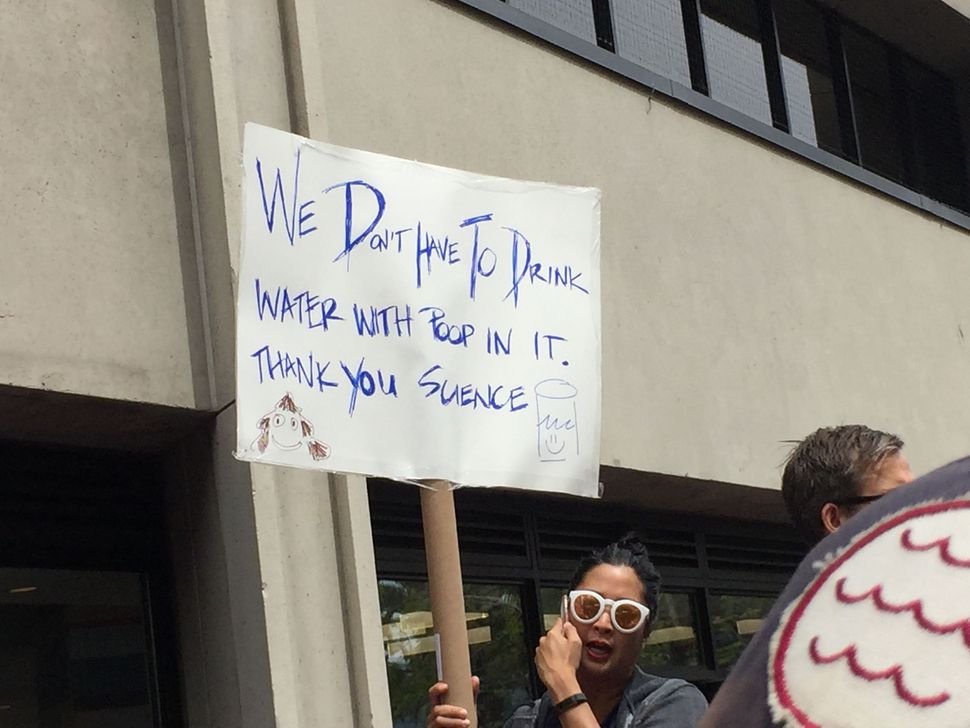 WE DON'T HAVE TO DRINK
WATER WITH POOP IN IT.
THANK YOU SCIENCE